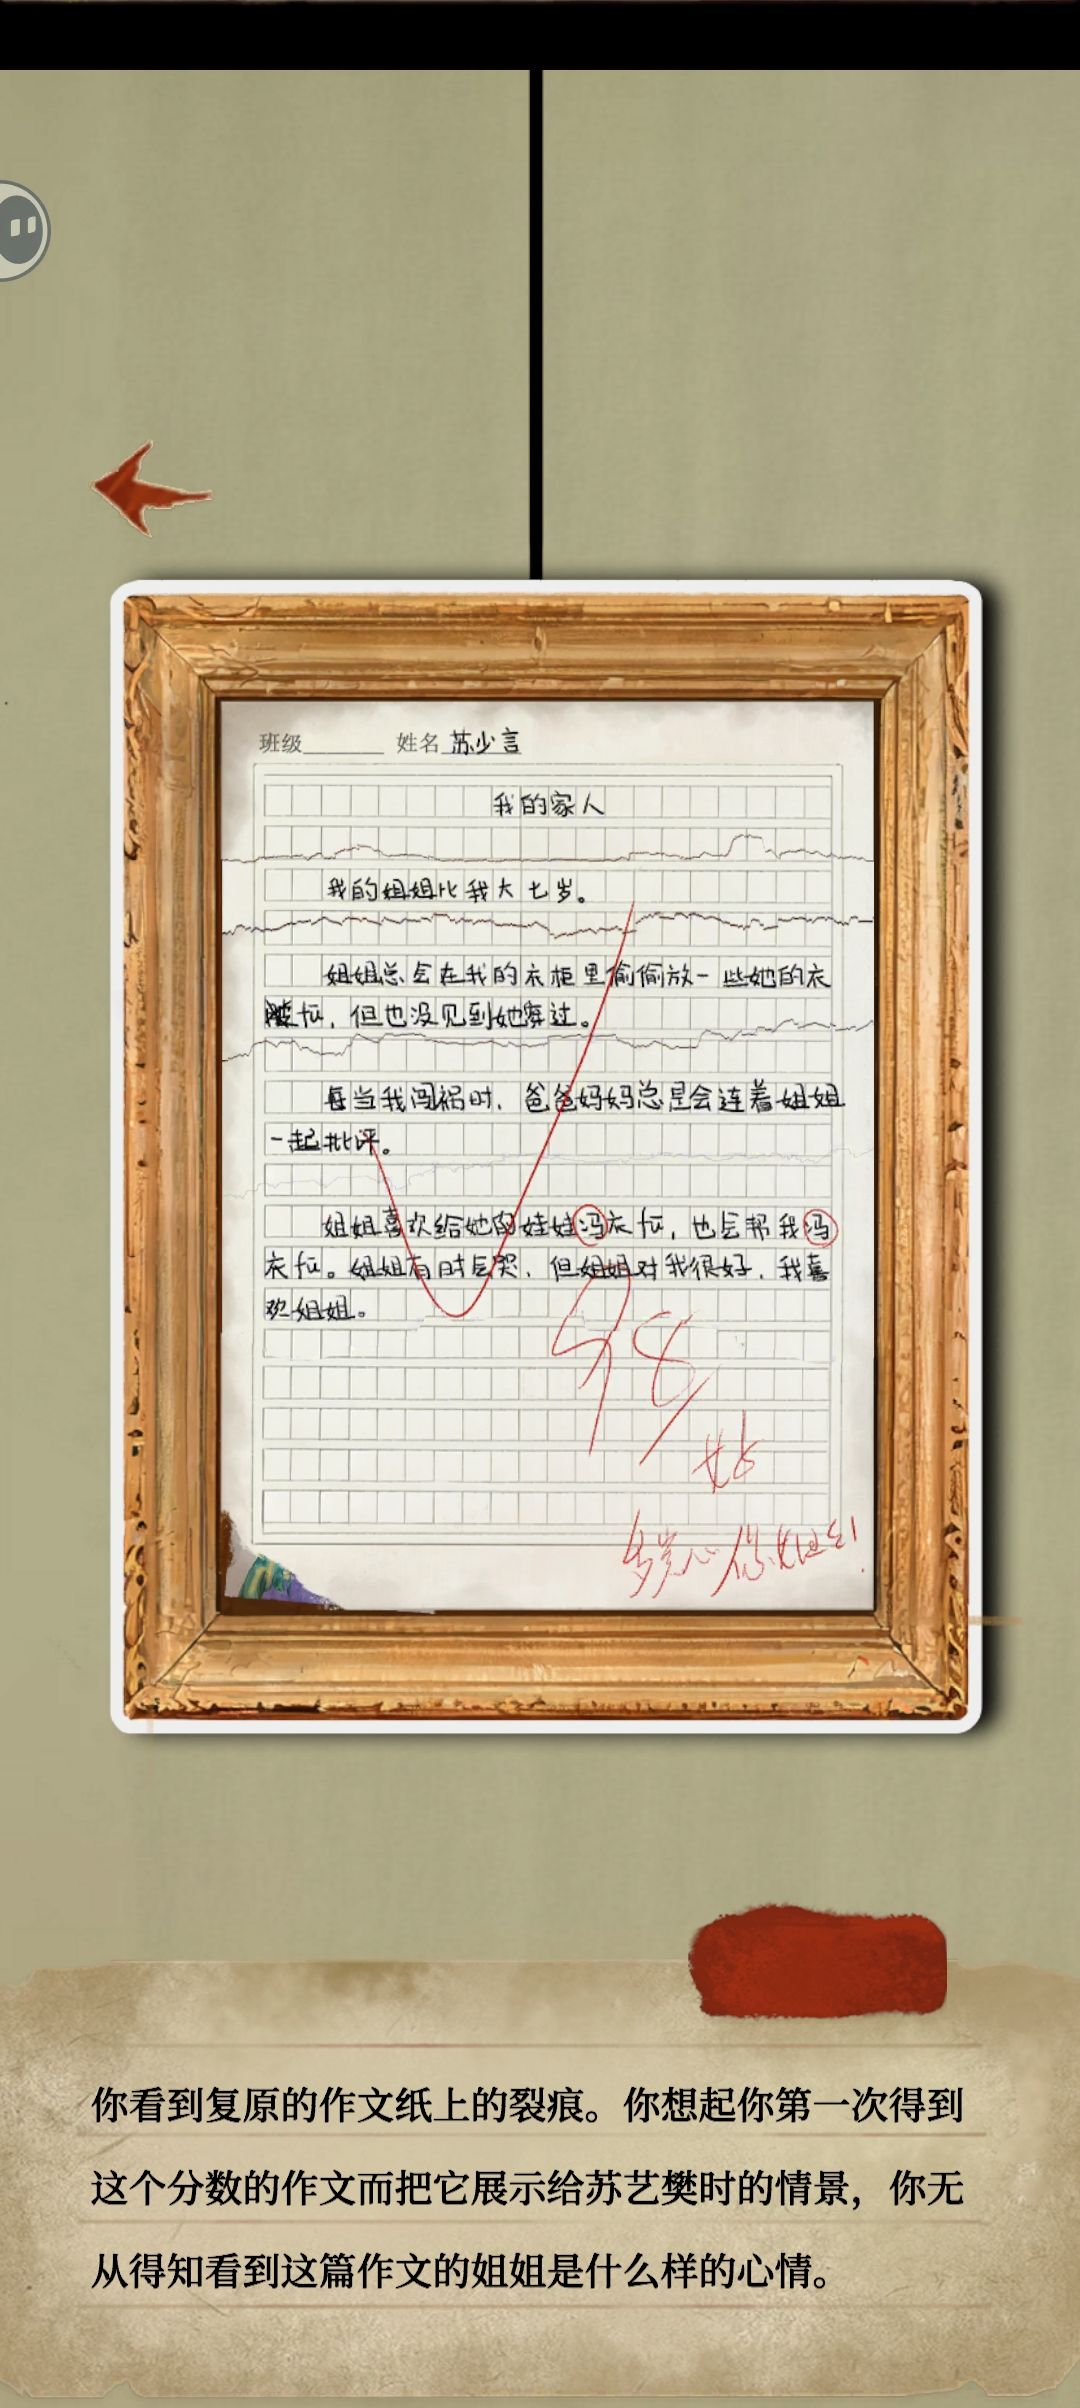 班级 姓名 苏少言
我的家人
我的姐姐比我大七岁。
姐姐总会在我的衣柜里偷偷放一些她的衣
伝，但也没见到她穿过。
每当我闯祸时，爸爸妈妈总是会连着姐姐
一起批评。
姐姐喜欢给她的娃娃冯衣伝，也会帮我冯
衣伝。姐姐有时会哭，但姐姐对我很好，我喜
欢姐姐。
98
好
你看到复原的作文纸上的裂痕。你想起你第一次得到
这个分数的作文而把它展示给苏艺樊时的情景，你无
从得知看到这篇作文的姐姐是什么样的心情。